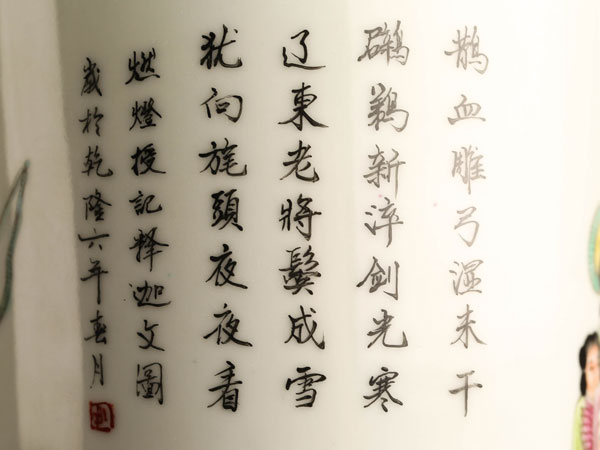 鵲血雕弓湿未干
鵜新淬劍光寒
辽東老將鬓成雪
犹向旄頭夜夜看
燃燈授記释迦文圖
歲於乾隆六年春月